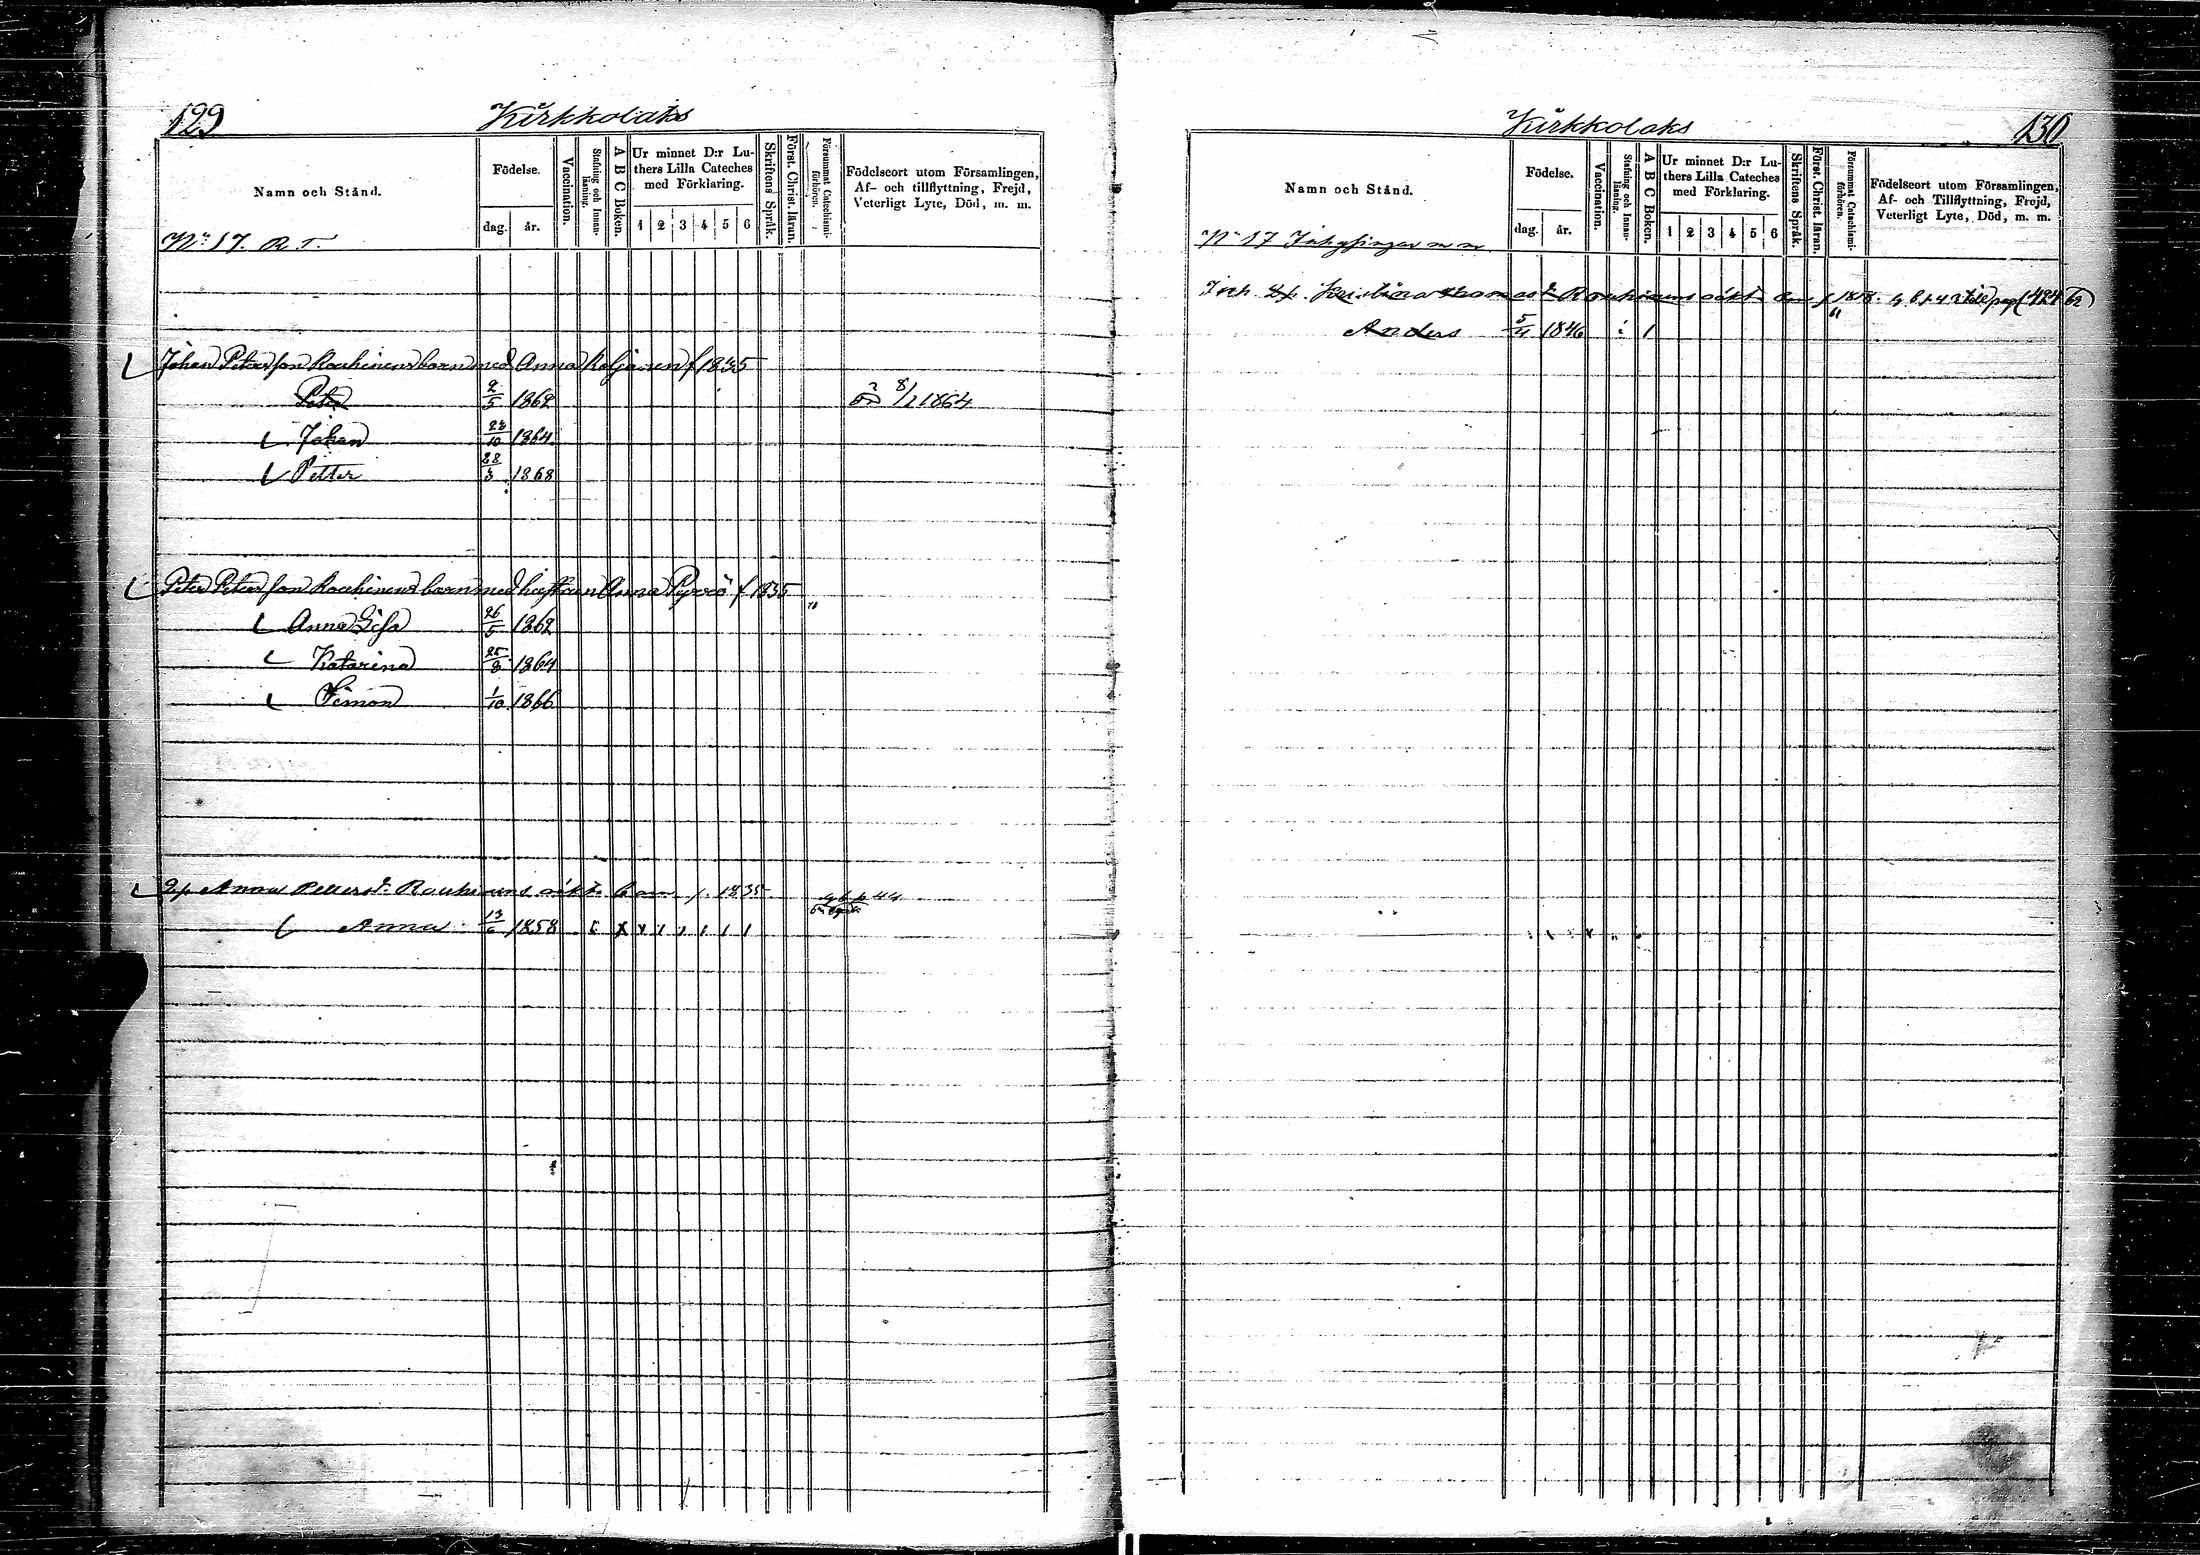 129
Kirkkolaks
Namn och Stånd.
Födelse.
dag. år.
Vaccination.
Stafning och Innanläsning.
A B C Boken.
Ur minnet D:r Luthers Lilla Cateches med Förklaring.
1 2 3 4 5 6
Skriftens Språk.
Först. Christ. läran.
Försummat Catechismiförhören.
Födelseort utom Församlingen,
Af- och tillflyttning, Frejd,
Veterligt Lyte, Död, m. m.
No 17. R T.
Johan Petersson Rouhiainens barn med Anna Koljonen f 1835
Peter 2/5 1862 8/1 1864
Johan 23/10 1864
Petter 28/3 1868
Peter Petersson Rouhiainens barn med hustrun Anna Pyrrö f 1835
Anna Lisa 26/5 1862
Katarina 25/8 1864
Simon 1/10 1866
Anna Pettersdr Rouhiainens oäkta barn f. 1835
Anna 13/6 1858
130
Kirkkolaks
Namn och Stånd.
Födelse.
dag. år.
Vaccination.
Stafning och Innanläsning.
A B C Boken.
Ur minnet D:r Luthers Lilla Cateches med Förklaring.
1 2 3 4 5 6
Skriftens Språk.
Först. Christ. läran.
Försummat Catechismiförhören.
Födelseort utom Församlingen,
Af- och Tillflyttning, Frejd,
Veterligt Lyte, Död, m. m.
No 17 Inhysingar m m
Inh. Kristina Thomasdr Rouhiainens oäkta barn f 1818. till pag 424
Anders 5/11 1846